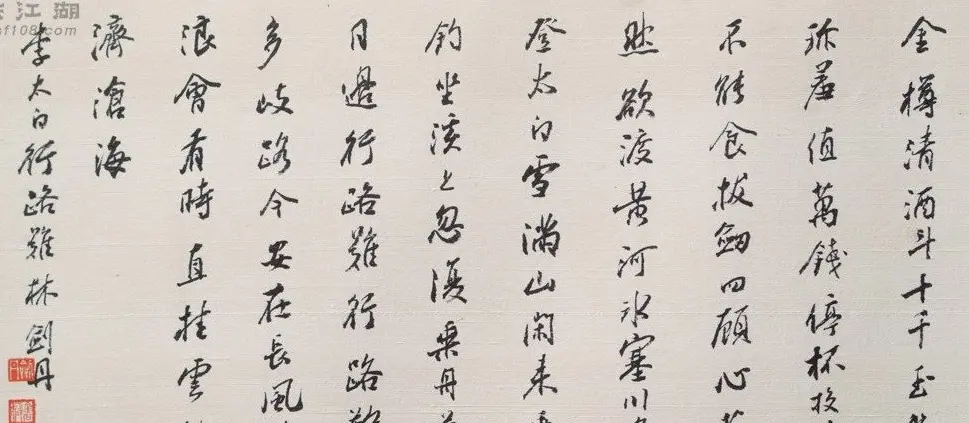 金樽清酒斗十千玉
珎羞值萬錢停杯投
不能食拔劍四顧心
然欲渡黃河冰塞川
登太白雪滿山閑來
釣坐溪上忽復乘舟
日邊行路難行路難
多岐路今安在長風
浪會有時直挂雲
濟滄海
李太白行路難林劍丹
艺江湖
sf108.com